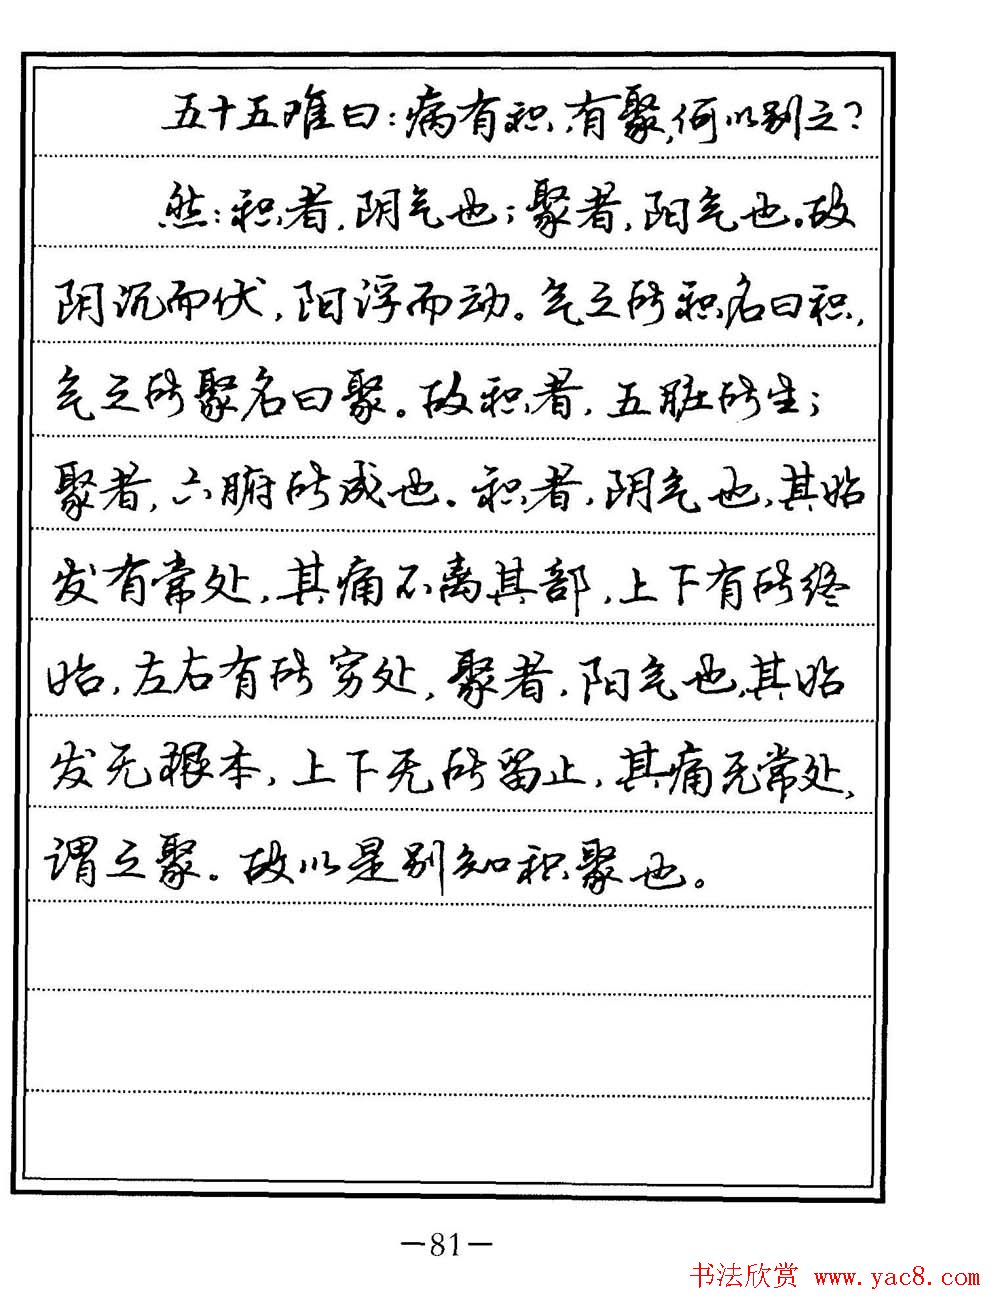 五十五难曰：病有积，有聚，何以别之？
然：积者，阴气也；聚者，阳气也。故
阴沉而伏，阳浮而动。气之所积名曰积，
气之所聚名曰聚。故积者，五脏所生；
聚者，六腑所成也。积者，阴气也，其始
发有常处，其痛不离其部，上下有所终
始，左右有所穷处，聚者，阳气也，其始
发无根本，上下无所留止，其痛无常处，
谓之聚。故以是别知积聚也。
—81—
书法欣赏 www.yac8.com